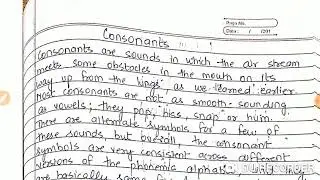 Page No.
Date: / /201
Consonants
Consonants are sounds in which the air stream
meets some obstacles in the mouth on its
way up from the lungs as we learned earlier.
Most consonants are not as smooth-sounding
as vowels; they pop, hiss, snap or hum.
There are alternate symbols for a few of
these sounds, but overall the consonant
symbols are very consistent across different
versions of the phonemic alphabet.
are basically same